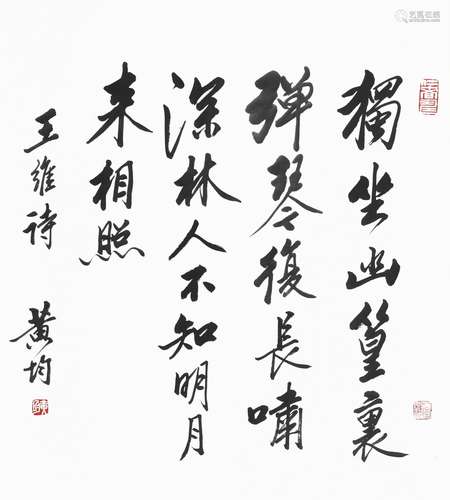 獨坐幽篁裏
弹琴復長嘯
深林人不知明月
来相照
王維詩
黄均